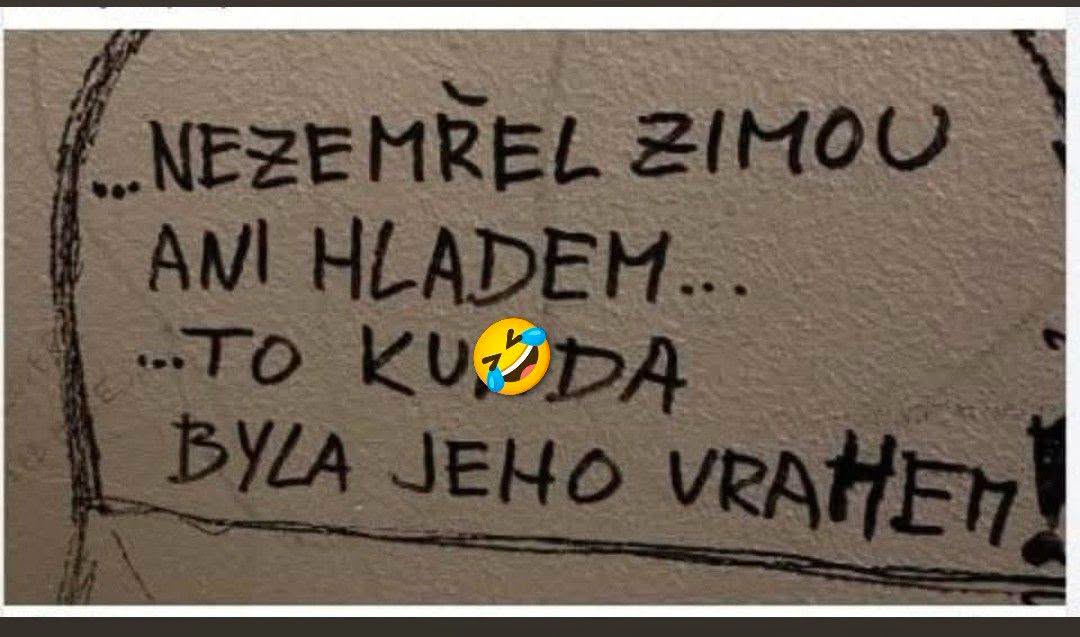 ...NEZEMŘEL ZIMOU
ANI HLADEM...
...TO KU🤣DA
BYLA JEHO VRAHEM!